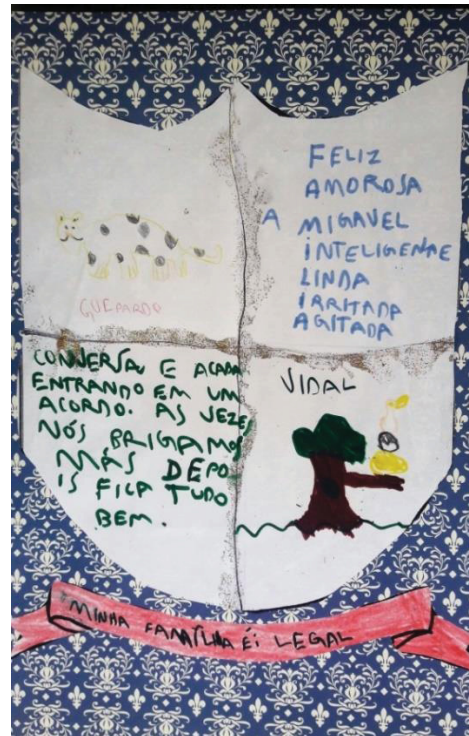 GUEPARDO
FELIZ
AMOROSA
A MIGAVEL
INTELIGENAE
LINDA
IRRITADA
AGITADA
CONVERSA E ACABA
ENTRANDO EM UM
ACORDO. AS VEZES
NÓS BRIGAMOS
MÁS DEPO
IS FICA TUDO
BEM.
VIDAL
MINHA FAMÍLHA É LEGAL